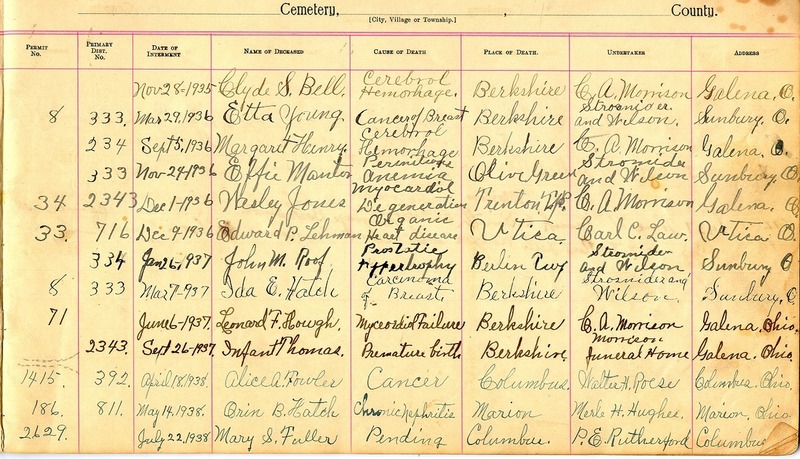 Cemetery, , County.
[City, Village or Township.]
PERMIT No. PRIMARY DIST. No. DATE OF INTERMENT NAME OF DECEASED CAUSE OF DEATH PLACE OF DEATH. UNDERTAKER ADDRESS
Nov 28-1935 Clyde S. Bell. Cerebrol Hemorrhage. Berkshire C. A. Morrison Galena, O.
8 333. Mar 29, 1936 Etta Young. Cancer of Breast Berkshire Strosnider and Wilson. Sunbury, O.
234 Sept 5, 1936 Margaret Henry. Cerebrol Hemorrhage Berkshire C. A. Morrison Galena. O.
333 Nov-24-1936 Effie Manton Pernicious Anemia Olive Green Strosnider and Wilson Sunbury, O
34 2343 Dec 1-1936 Wasley Jones Myocardol Degeneration Trenton Tp. C. A Morrison Galena. O.
33. 716 Dec 9-1936 Edward P. Lehman Organic Heart disease Utica. Carl C. Law. Utica O.
334 Jan 26, 1937 John M. Roof, Prostetic Hypertrophy Berlin Twp Strosnider and Wilson Sunbury O
8 333 Mar 7-937 Ida E. Hatch Carcinoma of Breast, Berkshire Strosnider and Wilson. Sunbury, O.
71 June 6-1937. Leonard F. Hough. Myocordid Failure Berkshire C. A. Morrison Galena. Ohio.
2343. Sept 26-1937 Infant Thomas. Premature birth Berkshire. Morrison Funeral Home Galena. Ohio
1415. 392. April 18, 1938. Alice A. Fowles Cancer Columbus. Walter H. Roese Columbus. Ohio.
186. 811. May 14, 1938. Orin B. Hatch Chronic Nephritis Marion Merle H. Hughes. Marion, Ohio
2629. July 22, 1938 Mary S. Fuller Pending Columbus. P. E. Rutherford Columbus